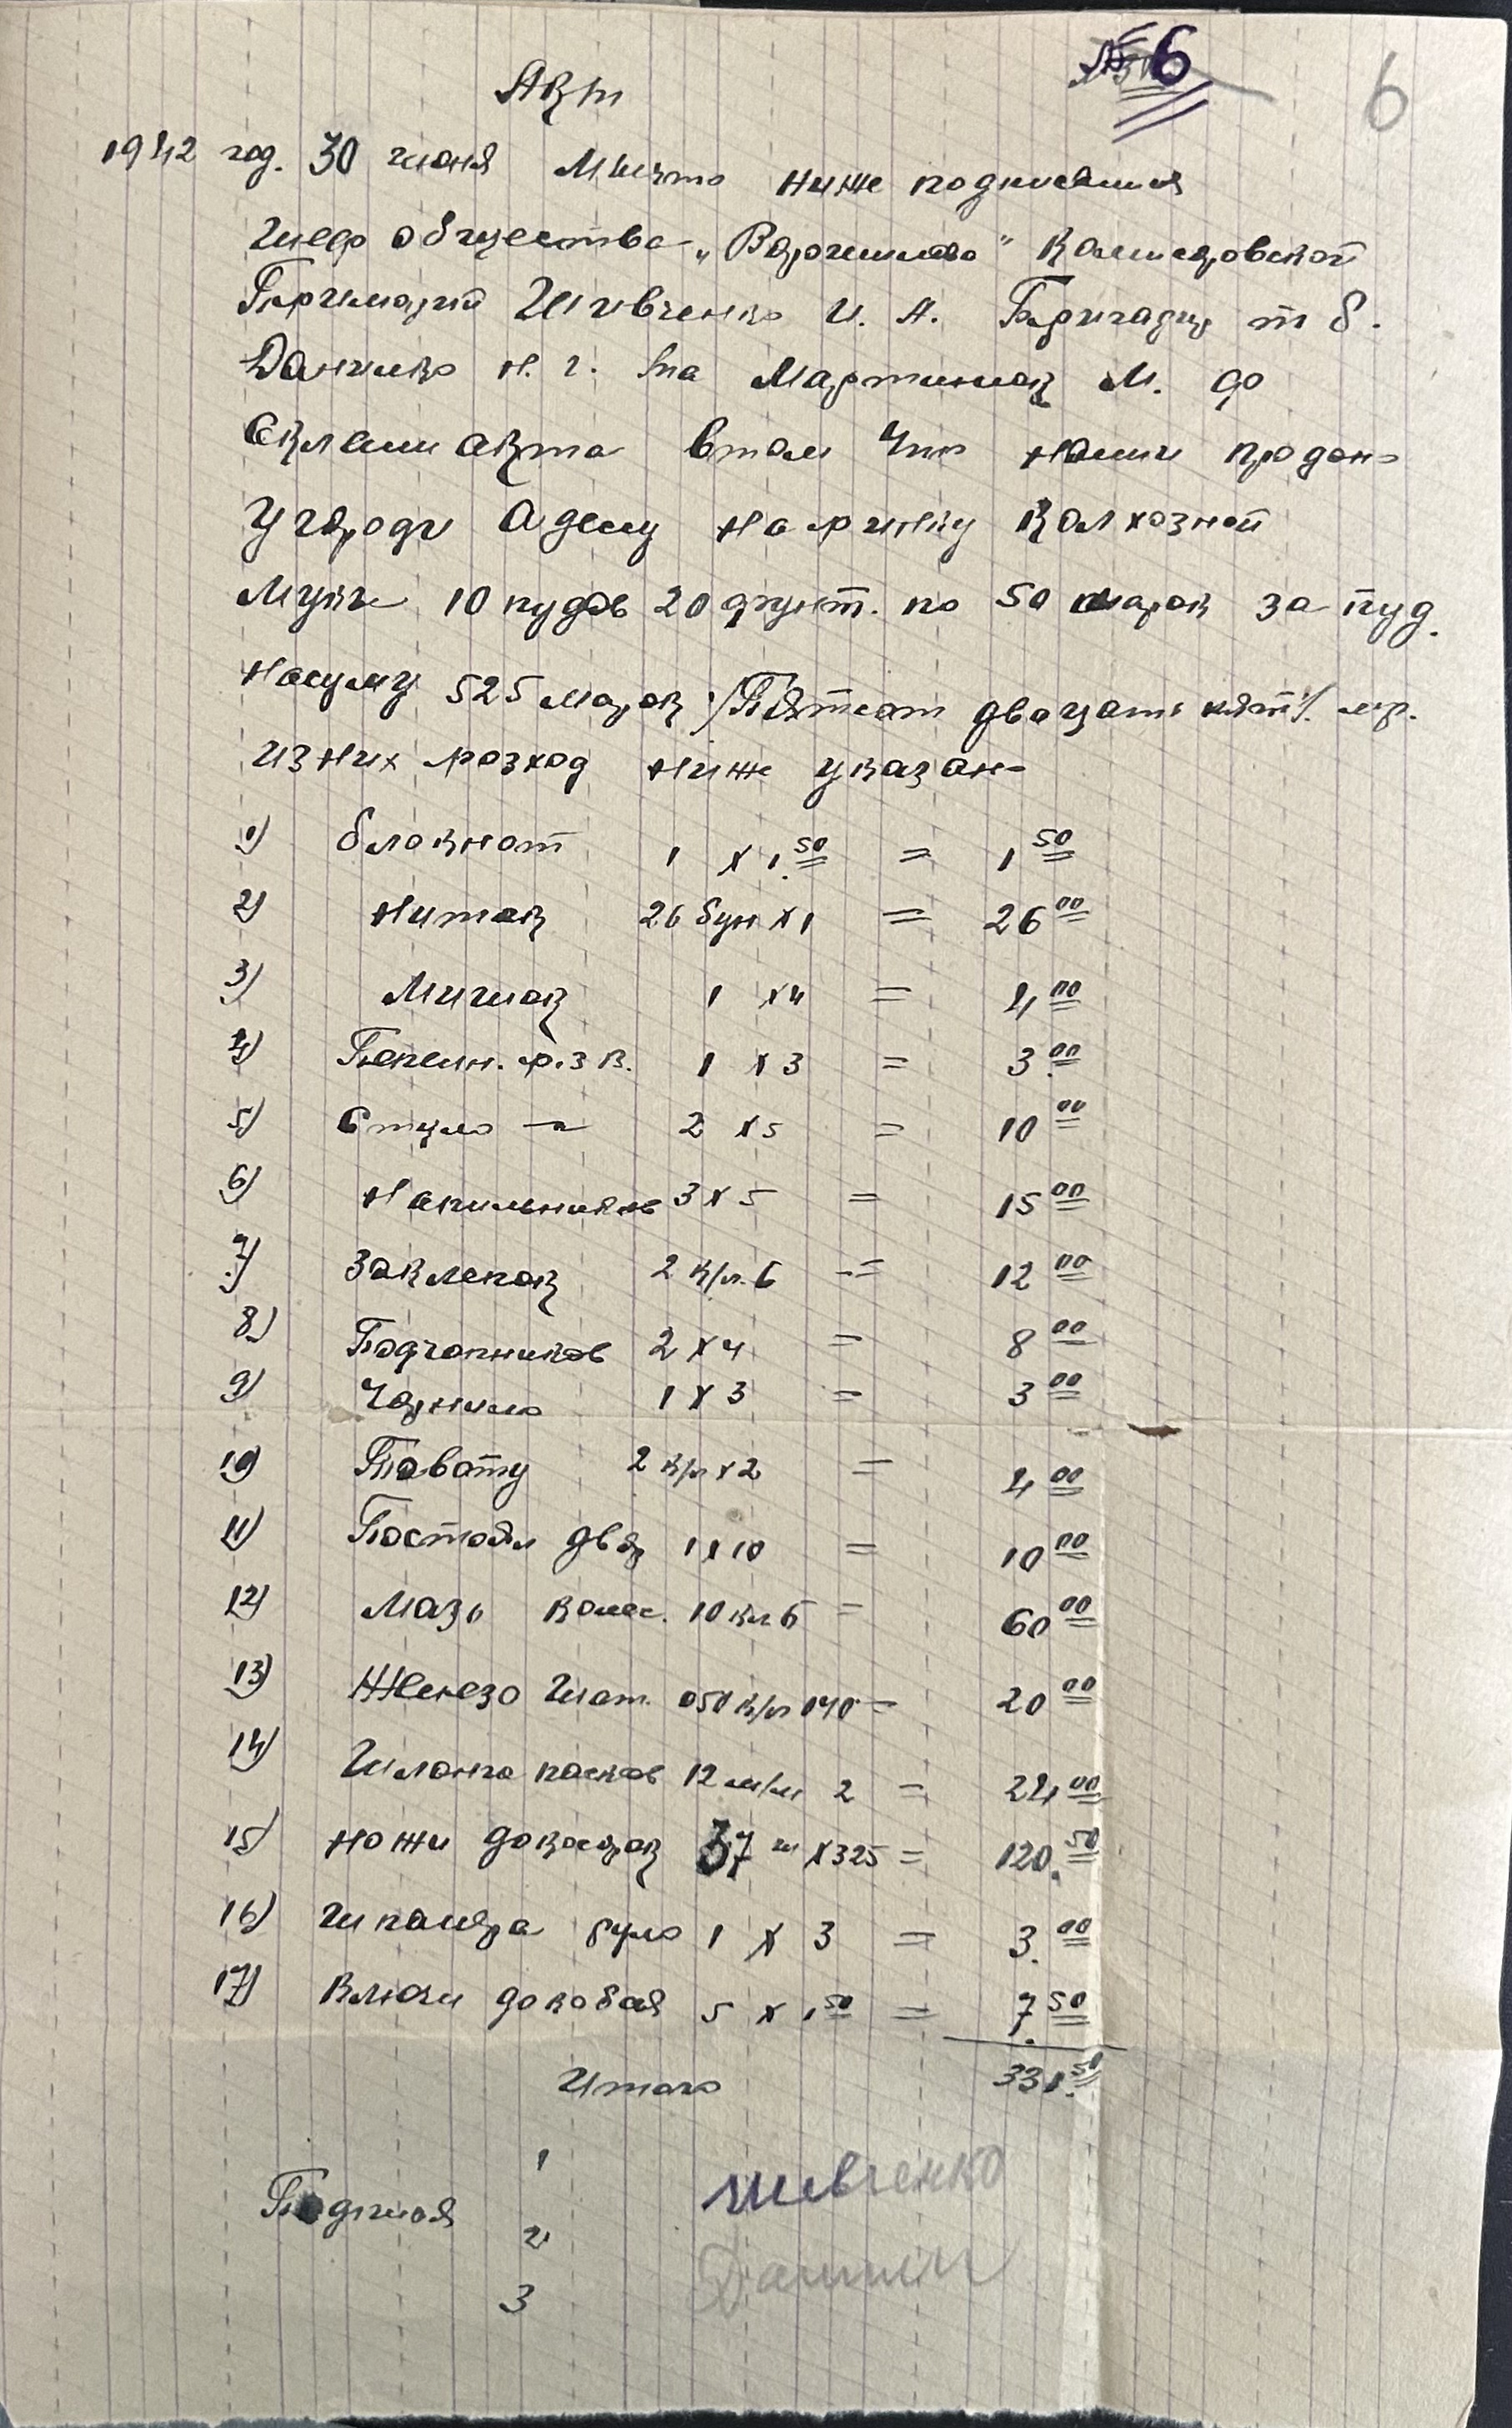 № 6
6
Акт
1942 год. 30 июня Мы что ниже подписавшия
Шеф общества „Ворошилово"
Примарии Шивченко И. А. Бригадир т б.
Данилко Н. Г. та Мартинюк М. до
склали акта втом что нами продан-
у городи Адесу на ринку колхозной
муки 10 пудов 20 фунт. по 50 марок за пуд.
насуму 525 марок /Пятсот двацать пят/. мр.
изних розход ниже указан-
1) блокнот 1 х 1.50 = 1 50
2) Ниток 26 бун х 1 = 26 00
3) Мишок 1 х 4 = 4 00
4) 1 х 3 = 3.00
5) Стуло — 2 х 5 = 10 00
6) Напильников 3 х 5 = 15 00
7) Заклепок 2 к/л. 6 = 12 00
8) Подчопников 2 х 4 = 8 00
9) Чорнило 1 х 3 = 3 00
10) Товоту 2 к/л х 2 = 4 00
11) Постоял двор 1 х 10 = 10 00
12) Мазь колес. 10 кл 6 = 60 00
13) Железо шат. 050 к/л 040 = 20 00
14) Шланга 12 м/м 2 = 24 00
15) Ножи докосарок 37 ш х 325 = 120.50
16) 1 х 3 = 3.00
17) Ключи 5 х 1 50 = 7.50
Итого 331.50
Подписоя 1 Шивченко
2 Данилк
3